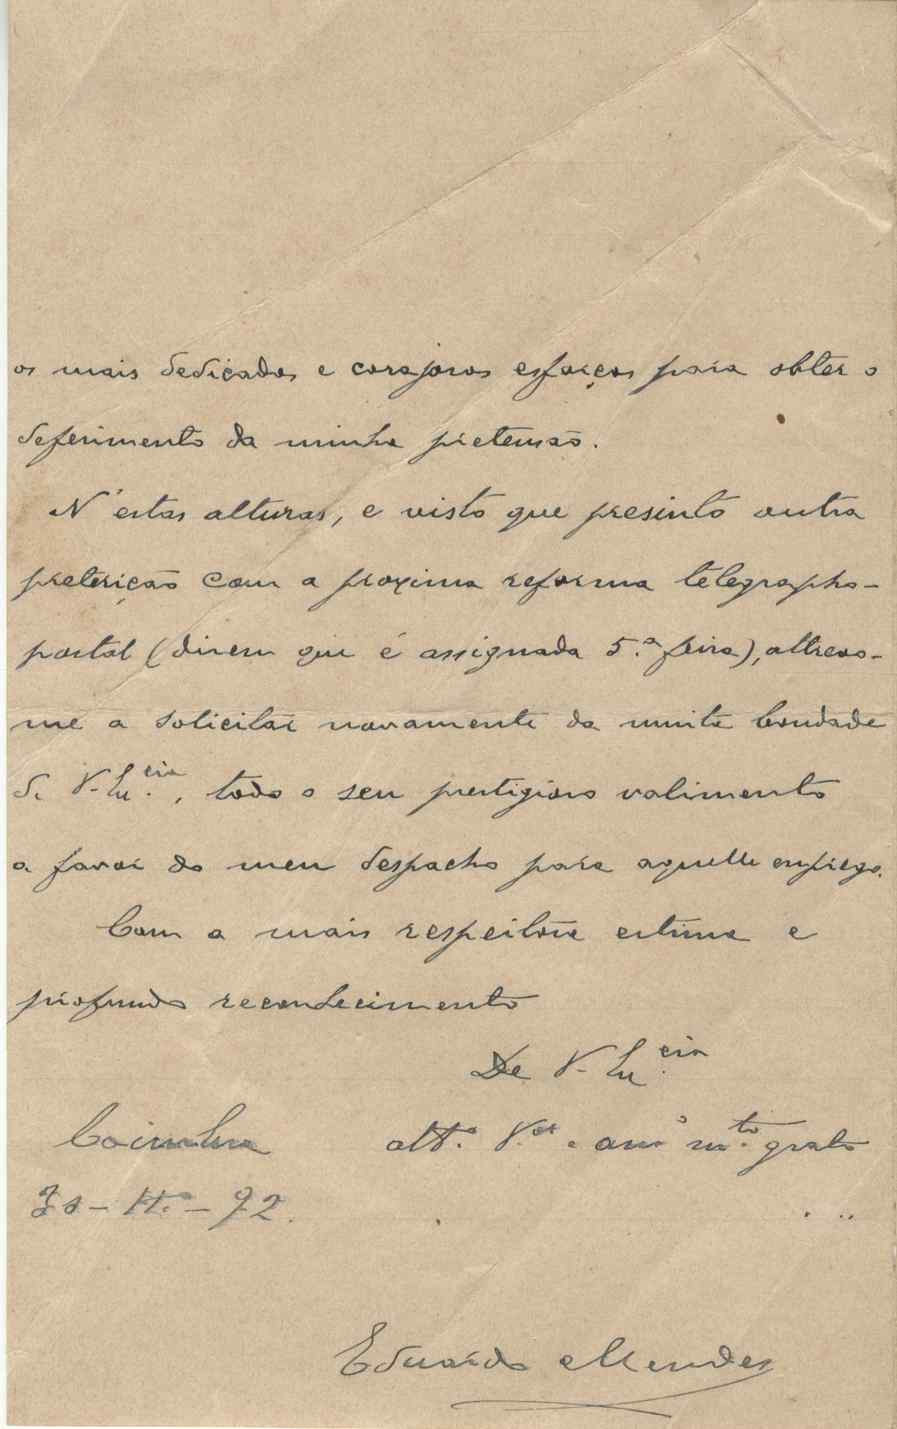 os mais dedicados e corajosos esforços para obter o
deferimento da minha pretensão.
N'estas alturas, e visto que presinto outra
preterição com a proxima reforma telegrapho-
postal (dizem que é assignada 5.ª feira), attrevo-
me a solicitar novamente da muita bondade
de V. Ex.cia, todo o seu prestigioso valimento
a favor do meu despacho para aquelle emprego.
Com a mais respeitosa estima e
profundo reconhecimento
De V. Ex.cia
Coimbra
att.º V.or e am.º m.to grato
92.
Eduardo Mendes